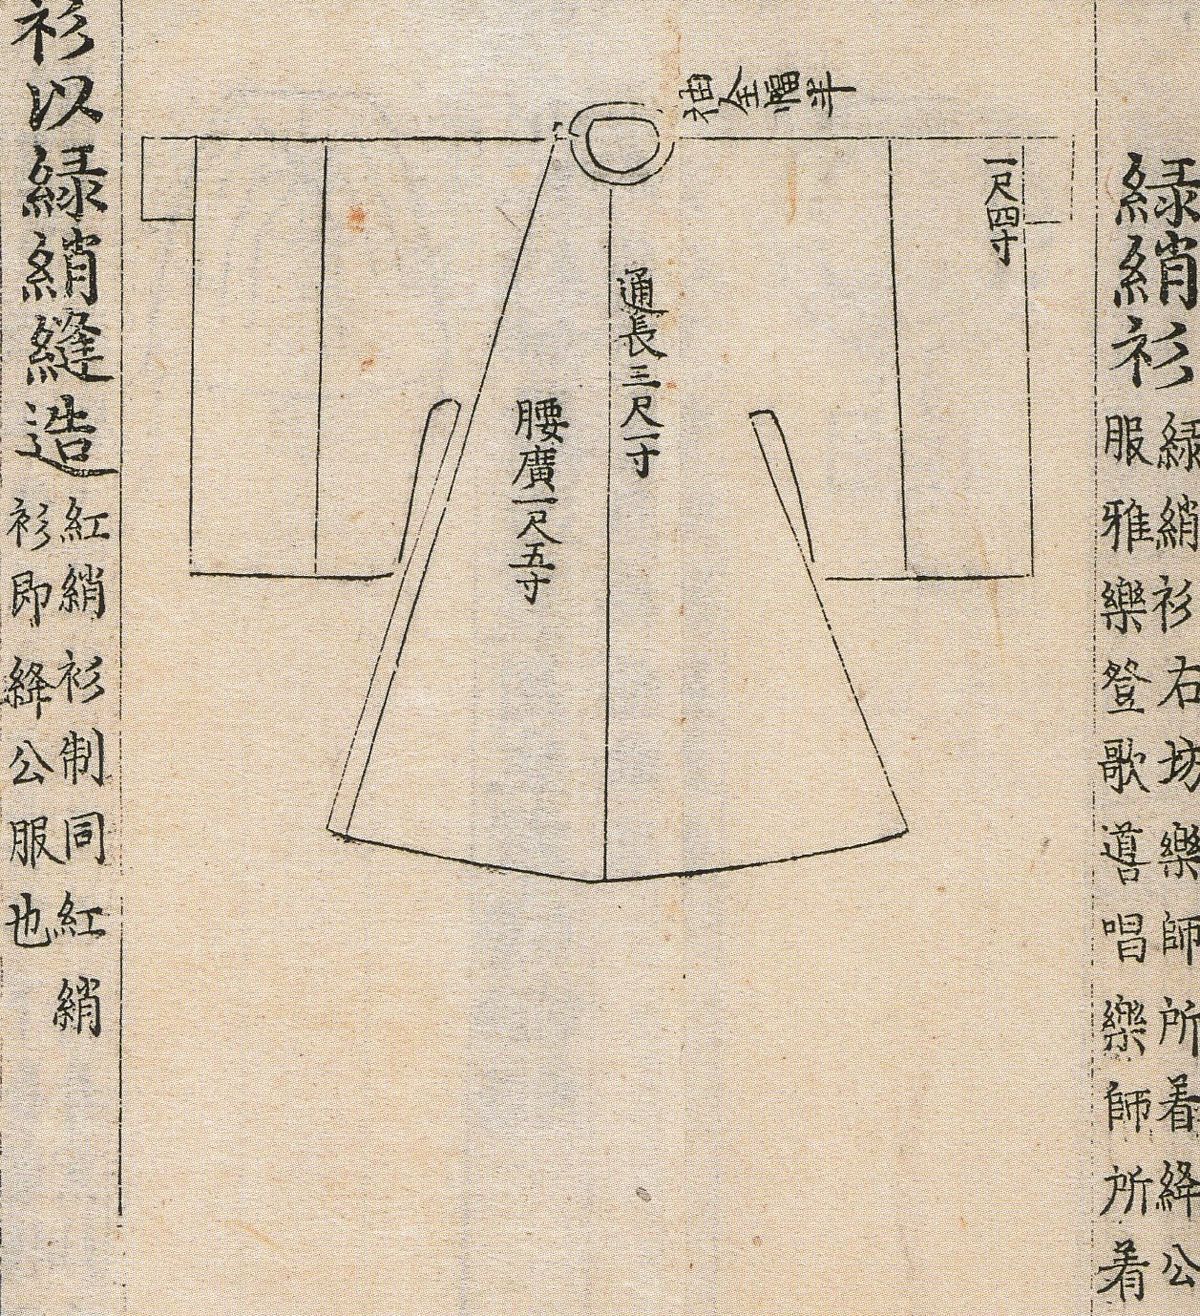 緑綃衫
緑綃衫右坊樂師所着絳公
服雅樂登歌噵唱樂師所着
袖全幅半
一尺四寸
通長三尺一寸
腰廣一尺五寸
衫以緑綃縫造
紅綃衫制同紅綃
衫即絳公服也